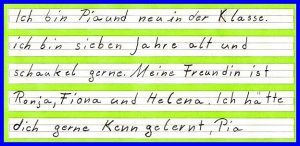 Ich bin Pia und neu in der Klasse.
ich bin sieben Jahre alt und
schaukel gerne. Meine Freundin ist
Ronja, Fiona und Helena. Ich hätte
dich gerne Kenn gelernt, Pia